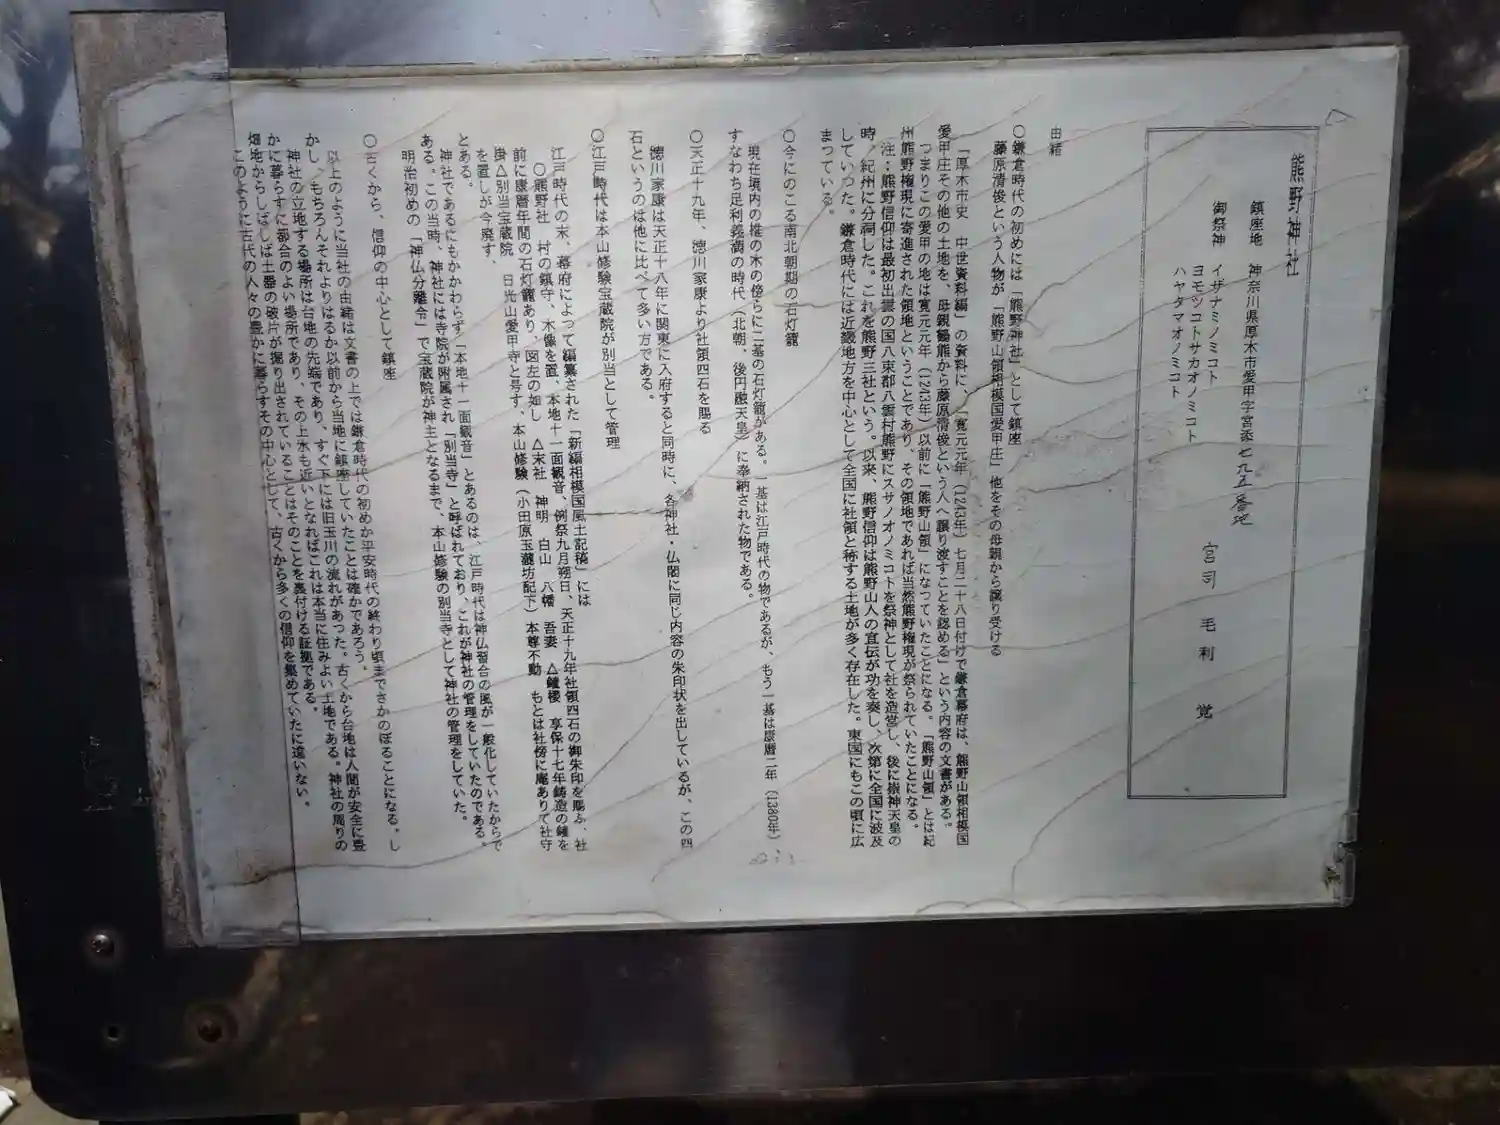 熊野神社
鎮座地　神奈川県厚木市愛甲字宮添七九五番地
御祭神　イザナミノミコト
ヨモツコトサカオノミコト
ハヤタマオノミコト
宮司　毛利　覚
由緒
〇鎌倉時代の初めには「熊野神社」として鎮座
藤原清俊という人物が「熊野山領相模国愛甲庄」他をその母親から譲り受ける
「厚木市史　中世資料編」の資料に、「寛元元年（1243年）七月二十八日付けで鎌倉幕府は、熊野山領相模国
愛甲庄その他の土地を、母親鶴熊から藤原清俊という人へ譲り渡すことを認める」という内容の文書がある。
つまりこの愛甲の地は寛元元年（1243年）以前に「熊野山領」になっていたことになる。「熊野山領」とは紀
州熊野権現に寄進された領地ということであり、その領地であれば当然熊野権現が祭られていたことになる。
注：熊野信仰は最初出雲の国八束郡八雲村熊野にスサノオノミコトを祭神として社を造営し、後に崇神天皇の
時、紀州に分祠した。これを熊野三社という。以来、熊野信仰は熊野山人の宣伝が功を奏し、次第に全国に波及
していった。鎌倉時代には近畿地方を中心として全国に社領と称する土地が多く存在した。東国にもこの頃に広
まっている。
〇今にのこる南北朝期の石灯籠
現在境内の椎の木の傍らに二基の石灯籠がある。一基は江戸時代の物であるが、もう一基は康暦二年（1380年）
すなわち足利義満の時代（北朝、後円融天皇）に奉納された物である。
〇天正十九年、徳川家康より社領四石を賜る
徳川家康は天正十八年に関東に入府すると同時に、各神社・仏閣に同じ内容の朱印状を出しているが、この四
石というのは他に比べて多い方である。
〇江戸時代は本山修験宝蔵院が別当として管理
江戸時代の末、幕府によって編纂された「新編相模国風土記稿」には
〇熊野社　村の鎮守、木像を置、本地十一面観音、例祭九月朔日、天正十九年社領四石の御朱印を賜ふ、社
前に康暦年間の石灯籠あり、図左の如し　△末社　神明　白山　八幡　吾妻　△鐘楼　享保十七年鋳造の鐘を
掛△別当宝蔵院　日光山愛甲寺と号す、本山修験（小田原玉瀧坊配下）本尊不動　もとは社傍に庵ありて社守
を置しが今廃す、
とある。
神社であるにもかかわらず「本地十一面観音」とあるのは、江戸時代は神仏習合の風が一般化していたからで
ある。この当時、神社には寺院が附属され「別当寺」と呼ばれており、これが神社の管理をしていたのである。
明治初めの「神仏分離令」で宝蔵院が神主となるまで、本山修験の別当寺として神社の管理をしていた。
〇古くから、信仰の中心として鎮座
以上のように当社の由緒は文書の上では鎌倉時代の初めか平安時代の終わり頃までさかのぼることになる。し
かし、もちろんそれよりはるか以前から当地に鎮座していたことは確かであろう。
神社の立地する場所は台地の先端であり、すぐ下には旧玉川の流れがあった。古くから台地は人間が安全に豊
かに暮らすに都合のよい場所であり、その上水も近いとなればこれは本当に住みよい土地である。神社の周りの
畑地からしばしば土器の破片が掘り出されていることはそのことを裏付ける証拠である。
このように古代の人々の豊かに暮らすその中心として、古くから多くの信仰を集めていたに違いない。